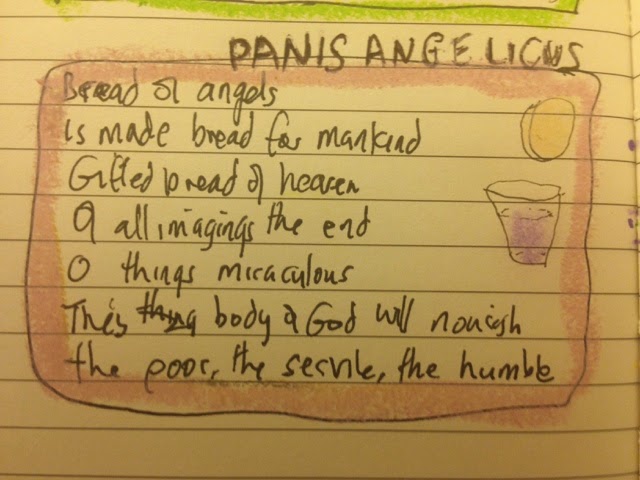 PANIS ANGELICUS
Bread of angels
Is made bread for mankind
Gifted bread of heaven
Of all imagings the end
O things miraculous
This thing body of God will nourish
the poor, the servile, the humble